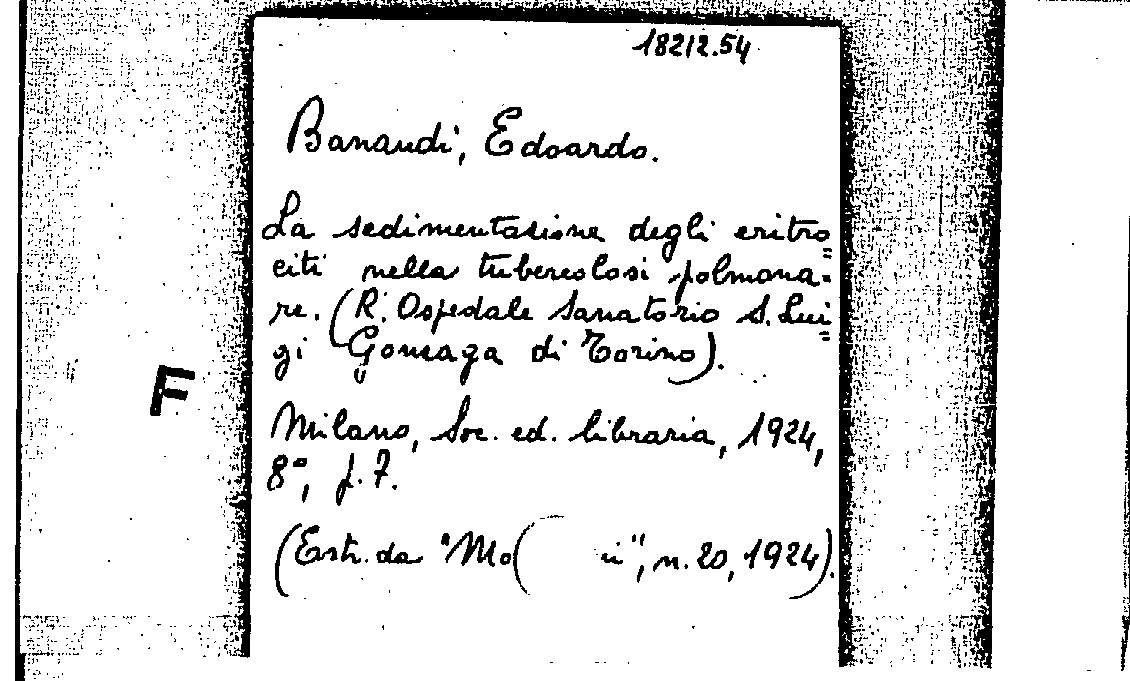 18212.54
Banaudi, Edoardo.
La sedimentazione degli eritro=
citi nella tubercolosi polmona=
re. (R. Ospedale Sanatorio S. Lui=
gi Gonzaga di Torino).
F
Milano, Soc. ed. libraria, 1924,
8°, p. 7.
(Estr. da "Mo( ", n. 20, 1924).